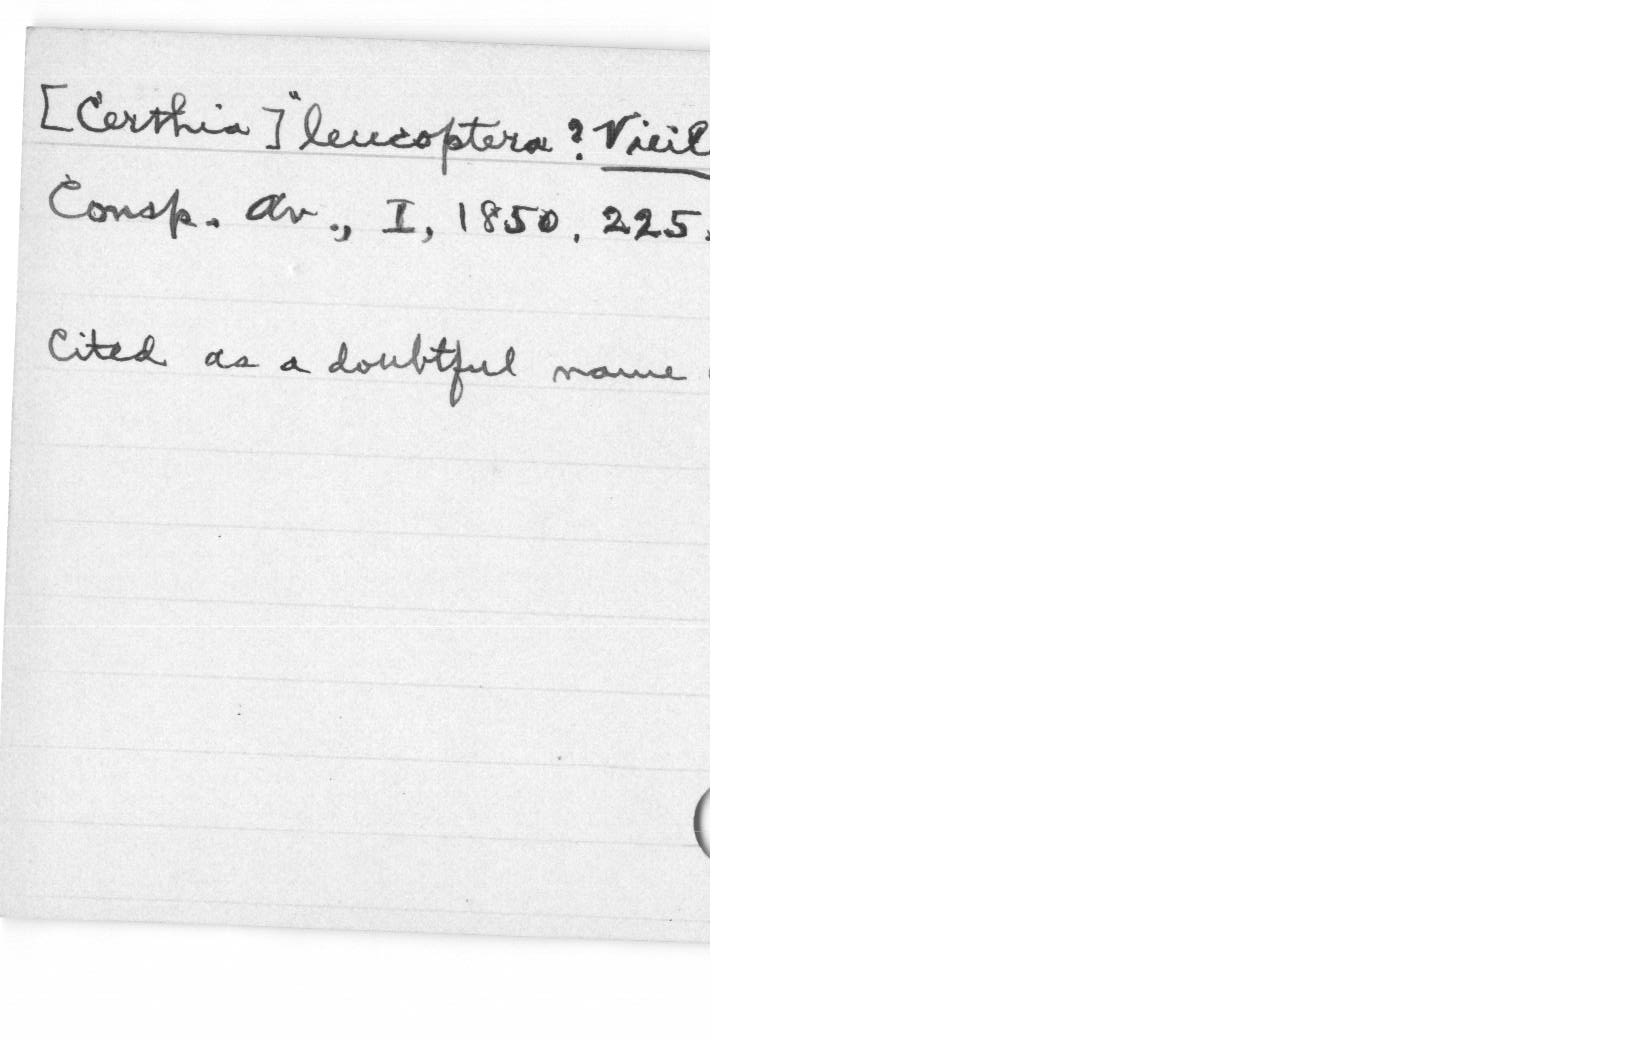 [Certhia] "leucoptera? Vieil
Consp. Av., I, 1850, 225.
Cited as a doubtful name